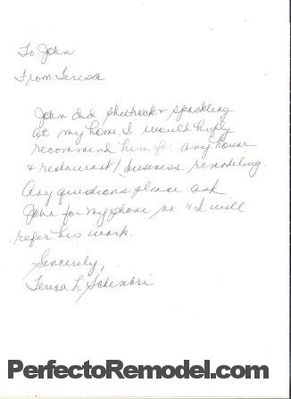 To John
From Teresa
John did Sheetrock & spackling
at my home. I would highly
recommend him for any house
& restaurant / business remodeling.
Any questions please ask
John for my phone no & I will
refer his work.
Sincerely,
Teresa L. Schembri
PerfectoRemodel.com